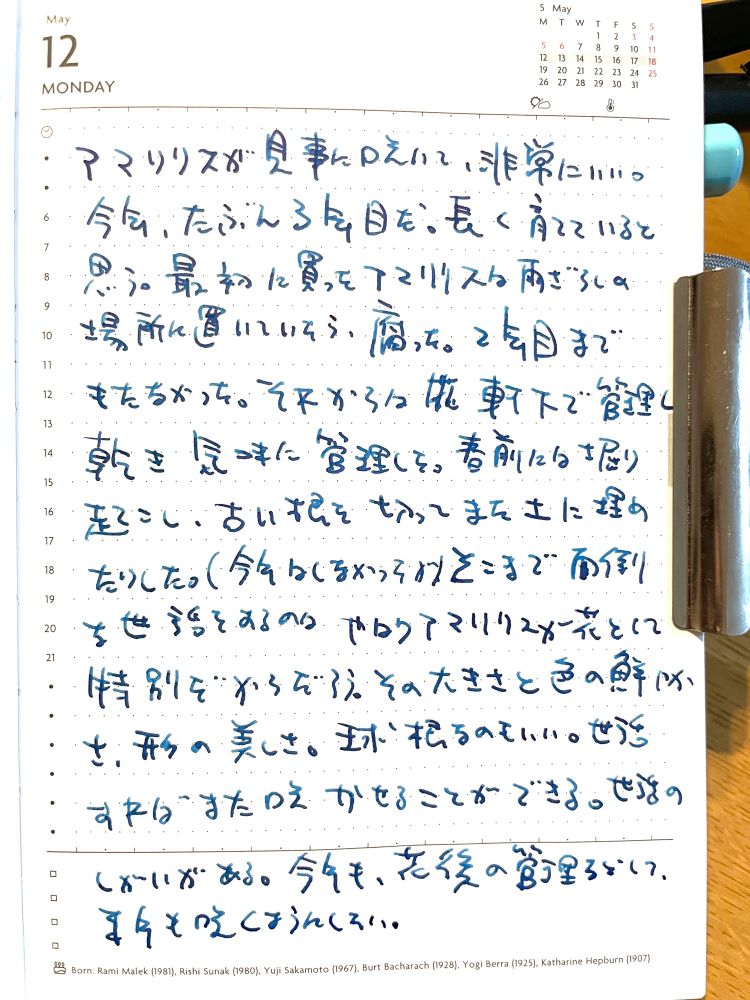 May
12
MONDAY
5 May
M T W T F S S
1 2 3 4
5 6 7 8 9 10 11
12 13 14 15 16 17 18
19 20 21 22 23 24 25
26 27 28 29 30 31
アマリリスが見事に咲いて、非常にいい。
今年、たぶん3年目だ。長く育てていると
6
思う。最初に買ったアマリリスは雨ざらしの
7
8
場所に置いていたら、腐った。2年目まで
9
10
もたなかった。それからは軒下で管理し
11
12
乾き気味に管理した。春前には掘り
13
14
起こし、古い根を切ってまた土に埋め
15
16
たりした。(今年はしなかったが)そこまで面倒
17
18
な世話をするのはやはりアマリリスが花として
19
20
特別だからだろう。その大きさと色の鮮やか
21
さ、形の美しさ。球根なのもいい。世話
すればまた咲かせることができる。世話の
しがいがある。今年も、花後の管理をして、
来年も咲くようにしたい。
Born: Rami Malek (1981), Rishi Sunak (1980), Yuji Sakamoto (1967), Burt Bacharach (1928), Yogi Berra (1925), Katharine Hepburn (1907)